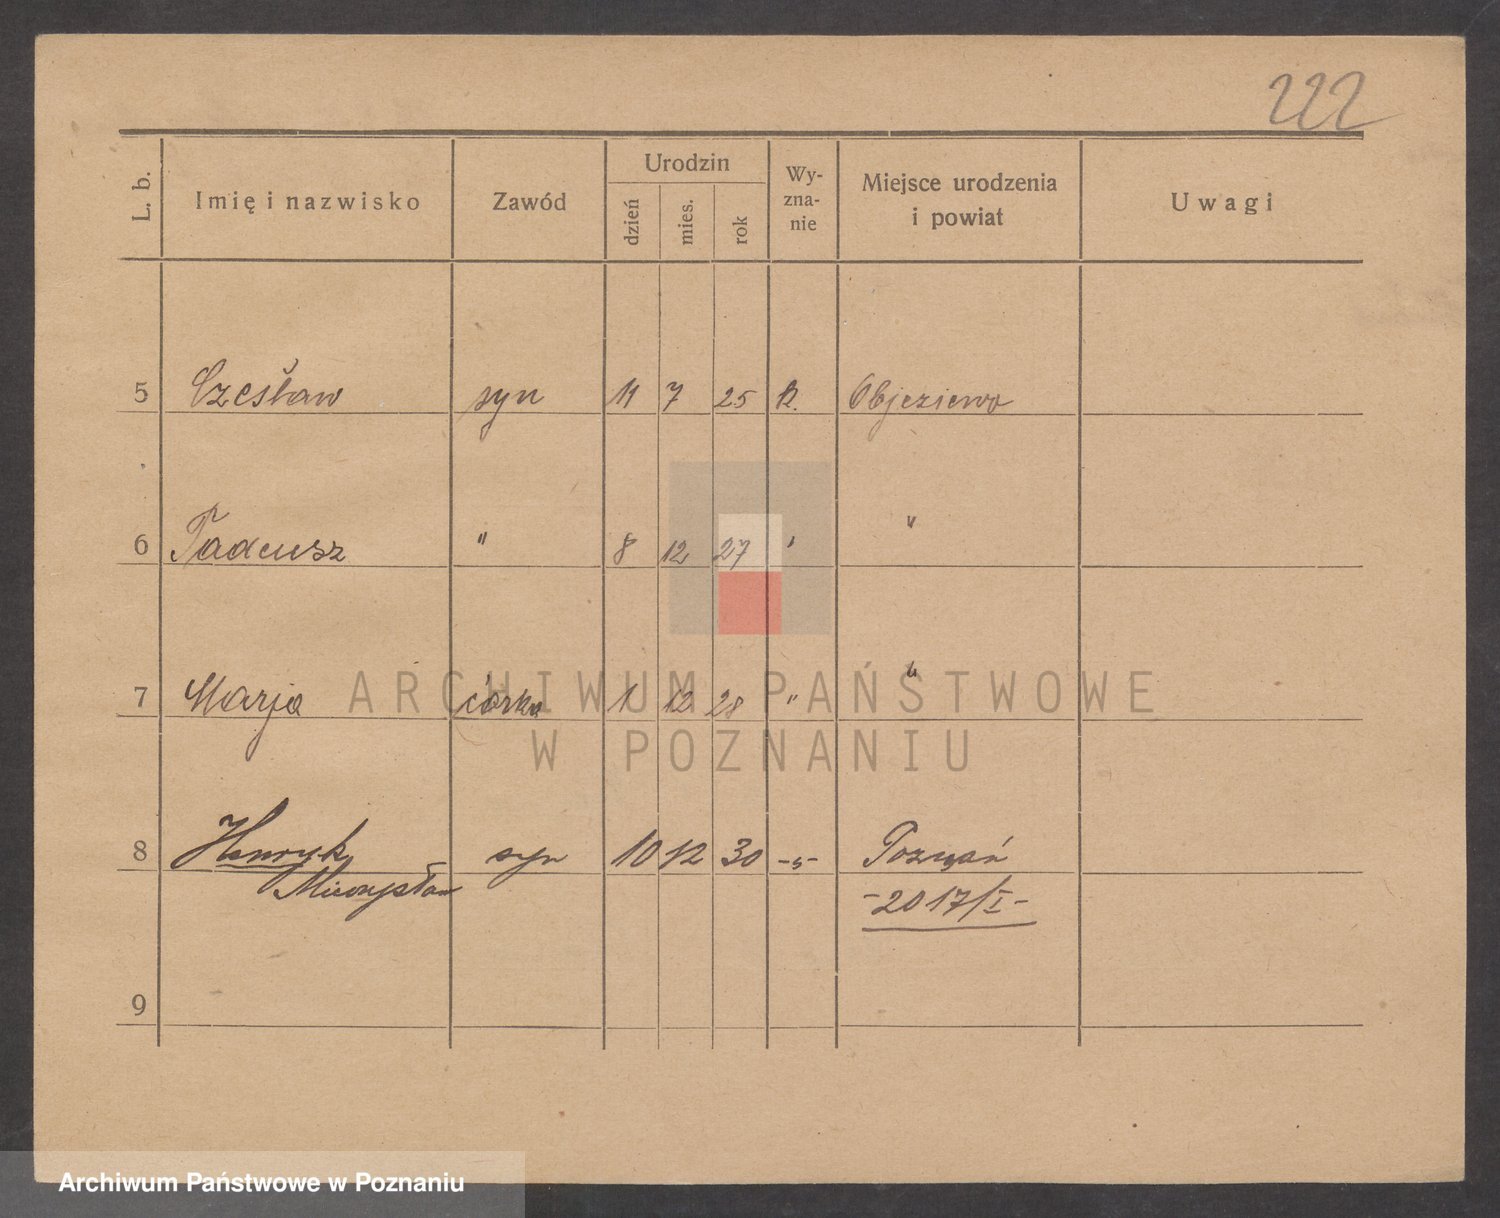 222
L. b. Imię i nazwisko Zawód Urodzin dzień mies. rok Wy-zna-nie Miejsce urodzenia i powiat Uwagi
5 Czesław syn 11 7 25 k. Objeziewo
6 Tadeusz " 8 12 27 " "
7 Marja córka 1 12 28 " "
8 Henryk syn 10 12 30 -"- Poznań
Mieczysław -2017/I-
9
ARCHIWUM PAŃSTWOWE
W POZNANIU
Archiwum Państwowe w Poznaniu